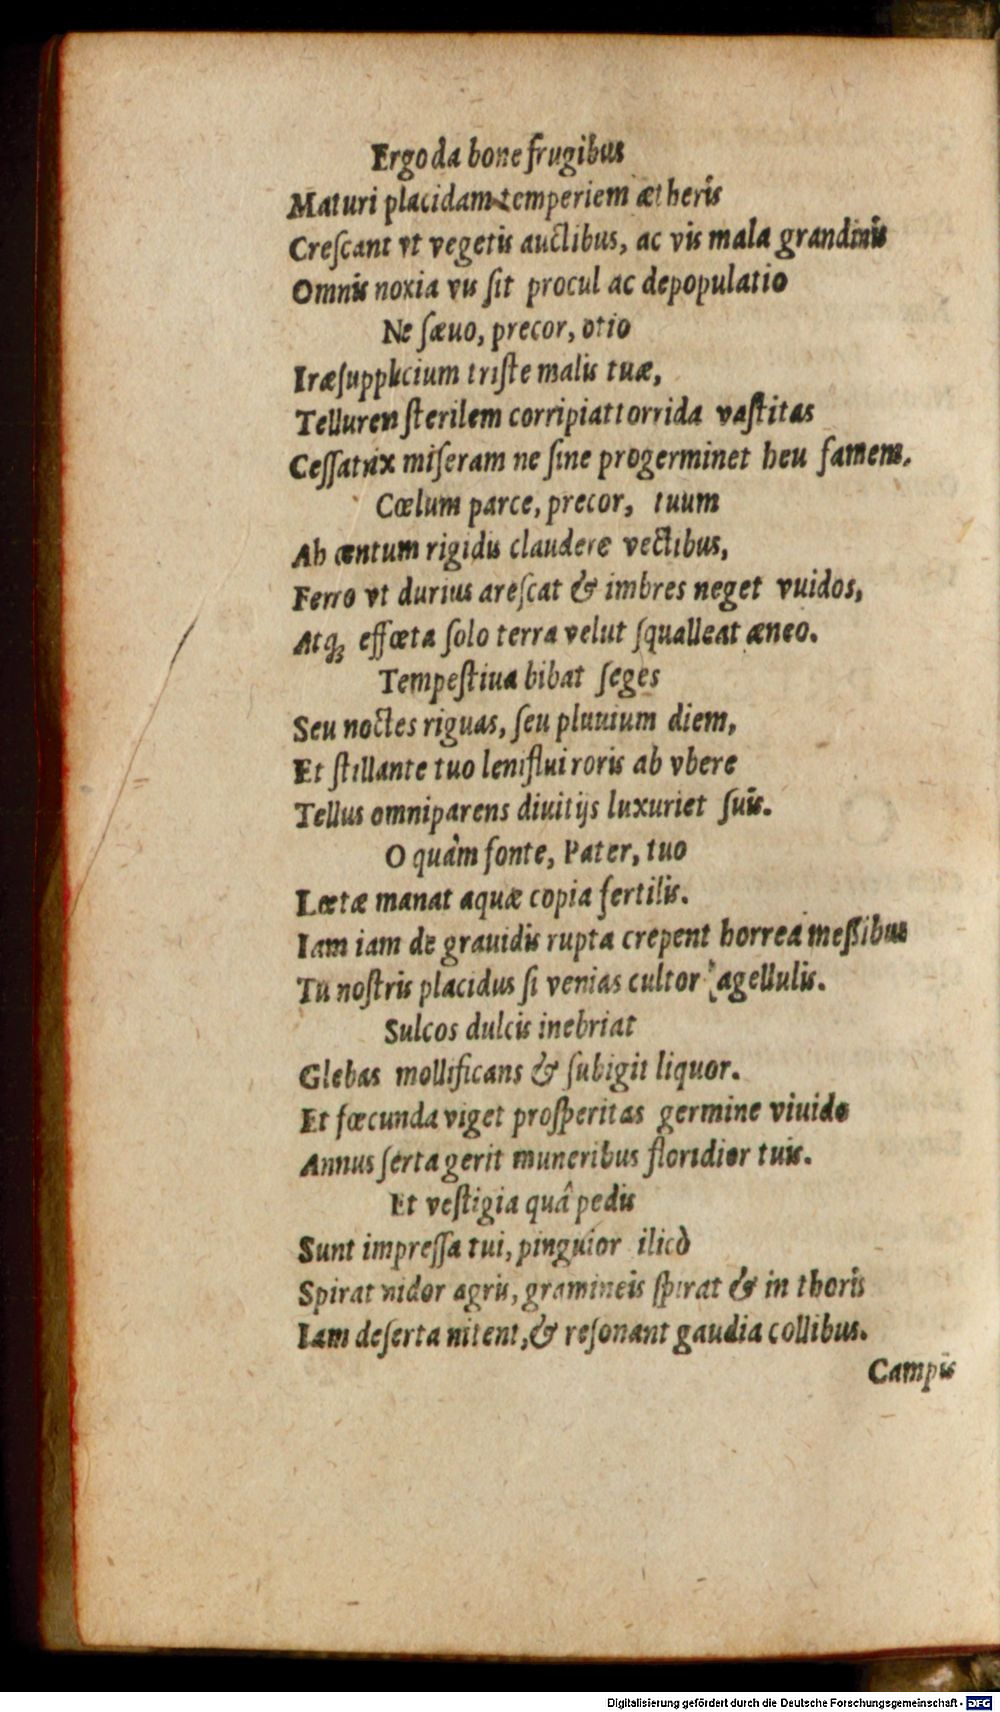 Ergo da bone frugibus
Maturi placidam temperiem ætheris
Creſcant vt vegetis auctibus, ac vis mala grandinis
Omnis noxia vis ſit procul ac depopulatio
Ne ſæuo, precor, otio
Iræ ſupplicium triſte malis tuæ,
Telluren ſterilem corripiat torrida vaſtitas
Ceſſatrix miſeram ne ſine progerminet heu famem.
Cœlum parce, precor, tuum
Ab œntum rigidis claudere vectibus,
Ferro vt durius areſcat & imbres neget vuidos,
Atq; effœta ſolo terra velut ſqualleat æneo.
Tempeſtiua bibat ſeges
Seu noctes riguas, ſeu pluuium diem,
Et ſtillante tuo leniflui roris ab vbere
Tellus omniparens diuitijs luxuriet ſuis.
O quàm fonte, Pater, tuo
Lœtæ manat aquæ copia fertilis.
Iam iam de grauidis rupta crepent horrea meſſibus
Tu noſtris placidus ſi venias cultor agellulis.
Sulcos dulcis inebriat
Glebas mollificans & ſubigit liquor.
Et fœcunda viget proſperitas germine viuido
Annus ſerta gerit muneribus floridior tuis.
Et veſtigia quâ pedis
Sunt impreſſa tui, pinguior ilicò
Spirat nidor agris, gramineis ſpirat & in thoris
Iam deſerta nitent, & reſonant gaudia collibus.
Campis
Digitalisierung gefördert durch die Deutsche Forschungsgemeinschaft - DFG